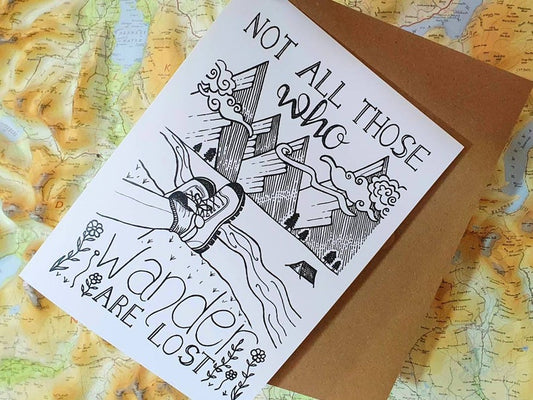 NOT ALL THOSE
who
Wander
ARE LOST